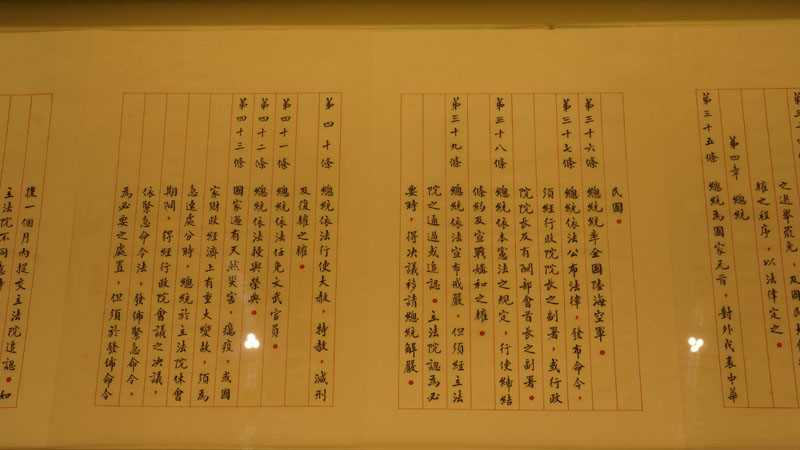 之選舉罷免,及國民
權之程序,以法律定之。
第四章 總統
第三十五條 總統為國家元首,對外代表中華
民國。
第三十六條 總統統率全國陸海空軍。
第三十七條 總統依法公布法律,發布命令,
須經行政院院長之副署,或行政
院院長及有關部會首長之副署。
第三十八條 總統依本憲法之規定,行使締結
條約及宣戰媾和之權。
第三十九條 總統依法宣布戒嚴,但須經立法
院之通過或追認。立法院認為必
要時,得決議移請總統解嚴。
第四十條 總統依法行使大赦,特赦,減刑
及復權之權。
第四十一條 總統依法任免文武官員。
第四十二條 總統依法授與榮典。
第四十三條 國家遇有天然災害,癘疫,或國
家財政經濟上有重大變故,須為
急速處分時,總統於立法院休會
期間,得經行政院會議之決議,
依緊急命令法,發佈緊急命令,
為必要之處置,但須於發佈命令
後一個月內提交立法院追認。如
立法院不同意時